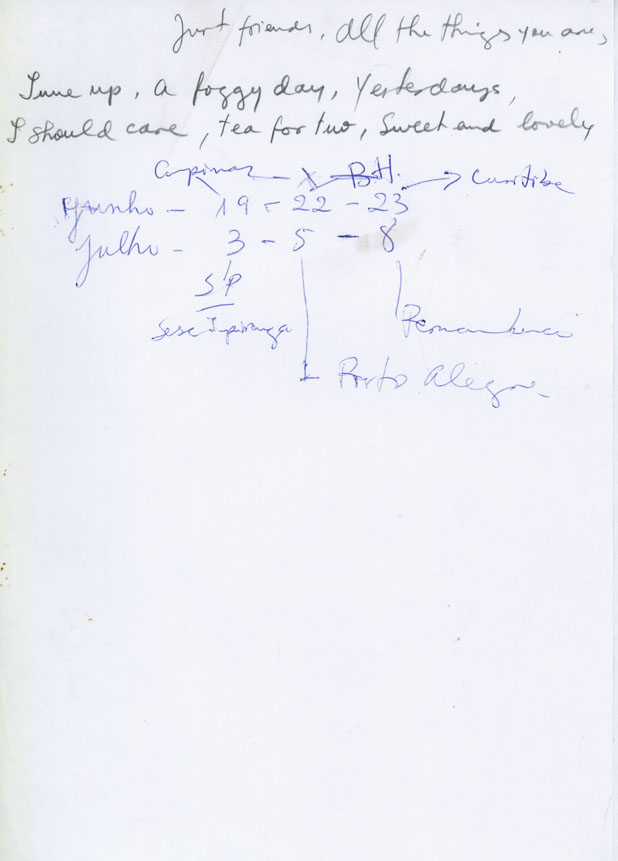 Just friends, All the things you are,
Tune up, A foggy day, Yesterdays,
I should care, tea for two, Sweet and lovely
Campinas — X B.H. → Curitiba
Junho — 19 - 22 - 23
Julho - 3 - 5 - 8
SP
Sesc Ipiranga
Pernambuco
Porto Alegre